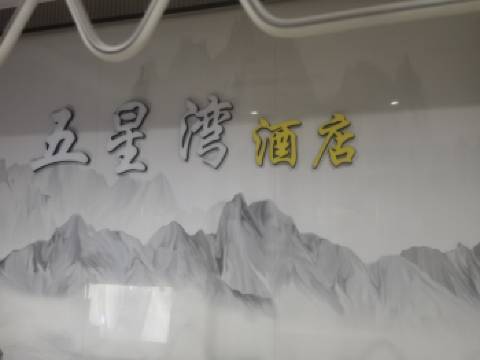 五星湾酒店